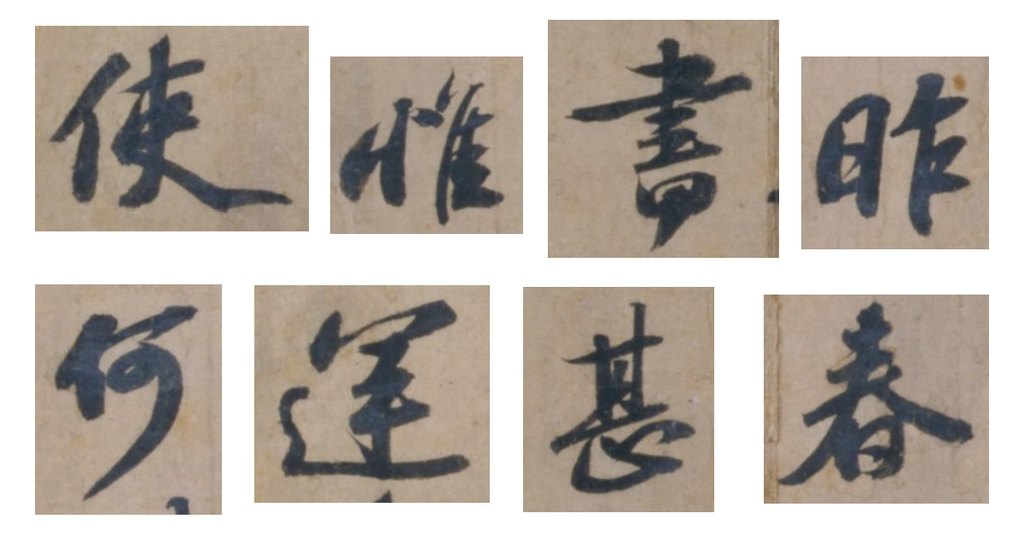 使惟書昨
何運甚春